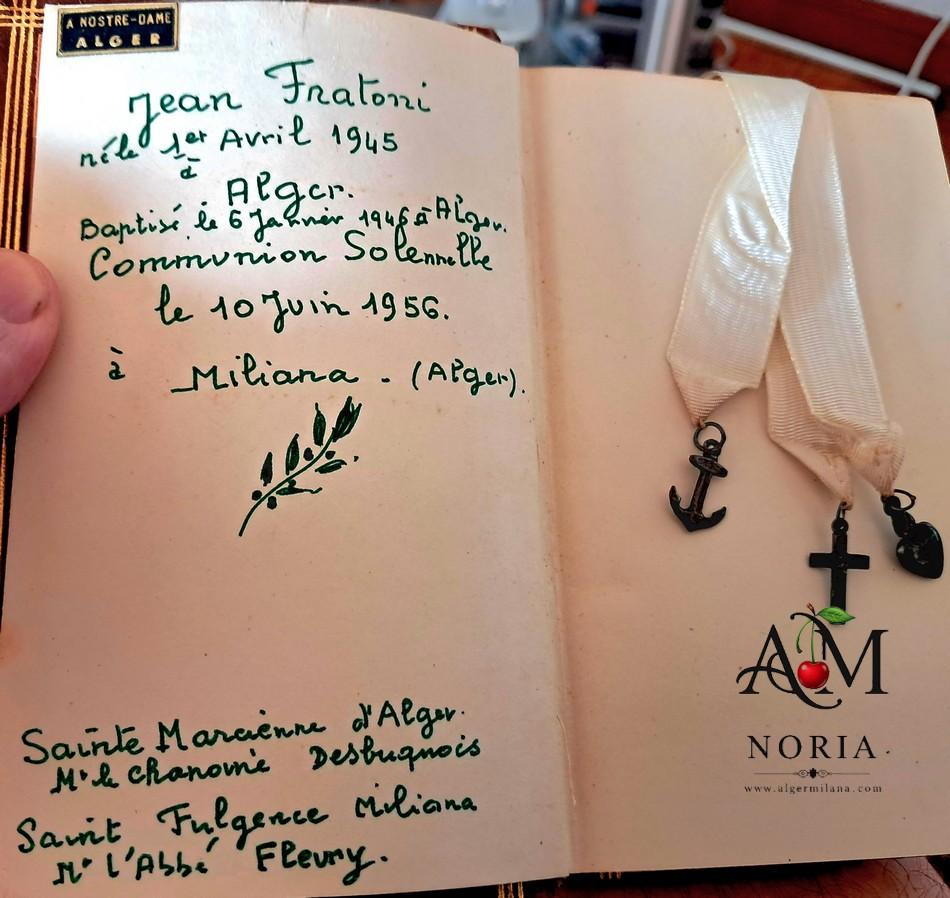 A NOSTRE-DAME
ALGER
Jean Fratoni
né le 1er Avril 1945
à
Alger.
Baptisé le 6 Janvier 1946 à Alger.
Communion Solennelle
le 10 Juin 1956.
à Miliana - (Alger).
Sainte Marcienne d'Alger.
Mr le Chanoine Desbuquois
Saint Fulgence Miliana
Mr l'Abbé Fleury.
AM
NORIA
www.algermilana.com